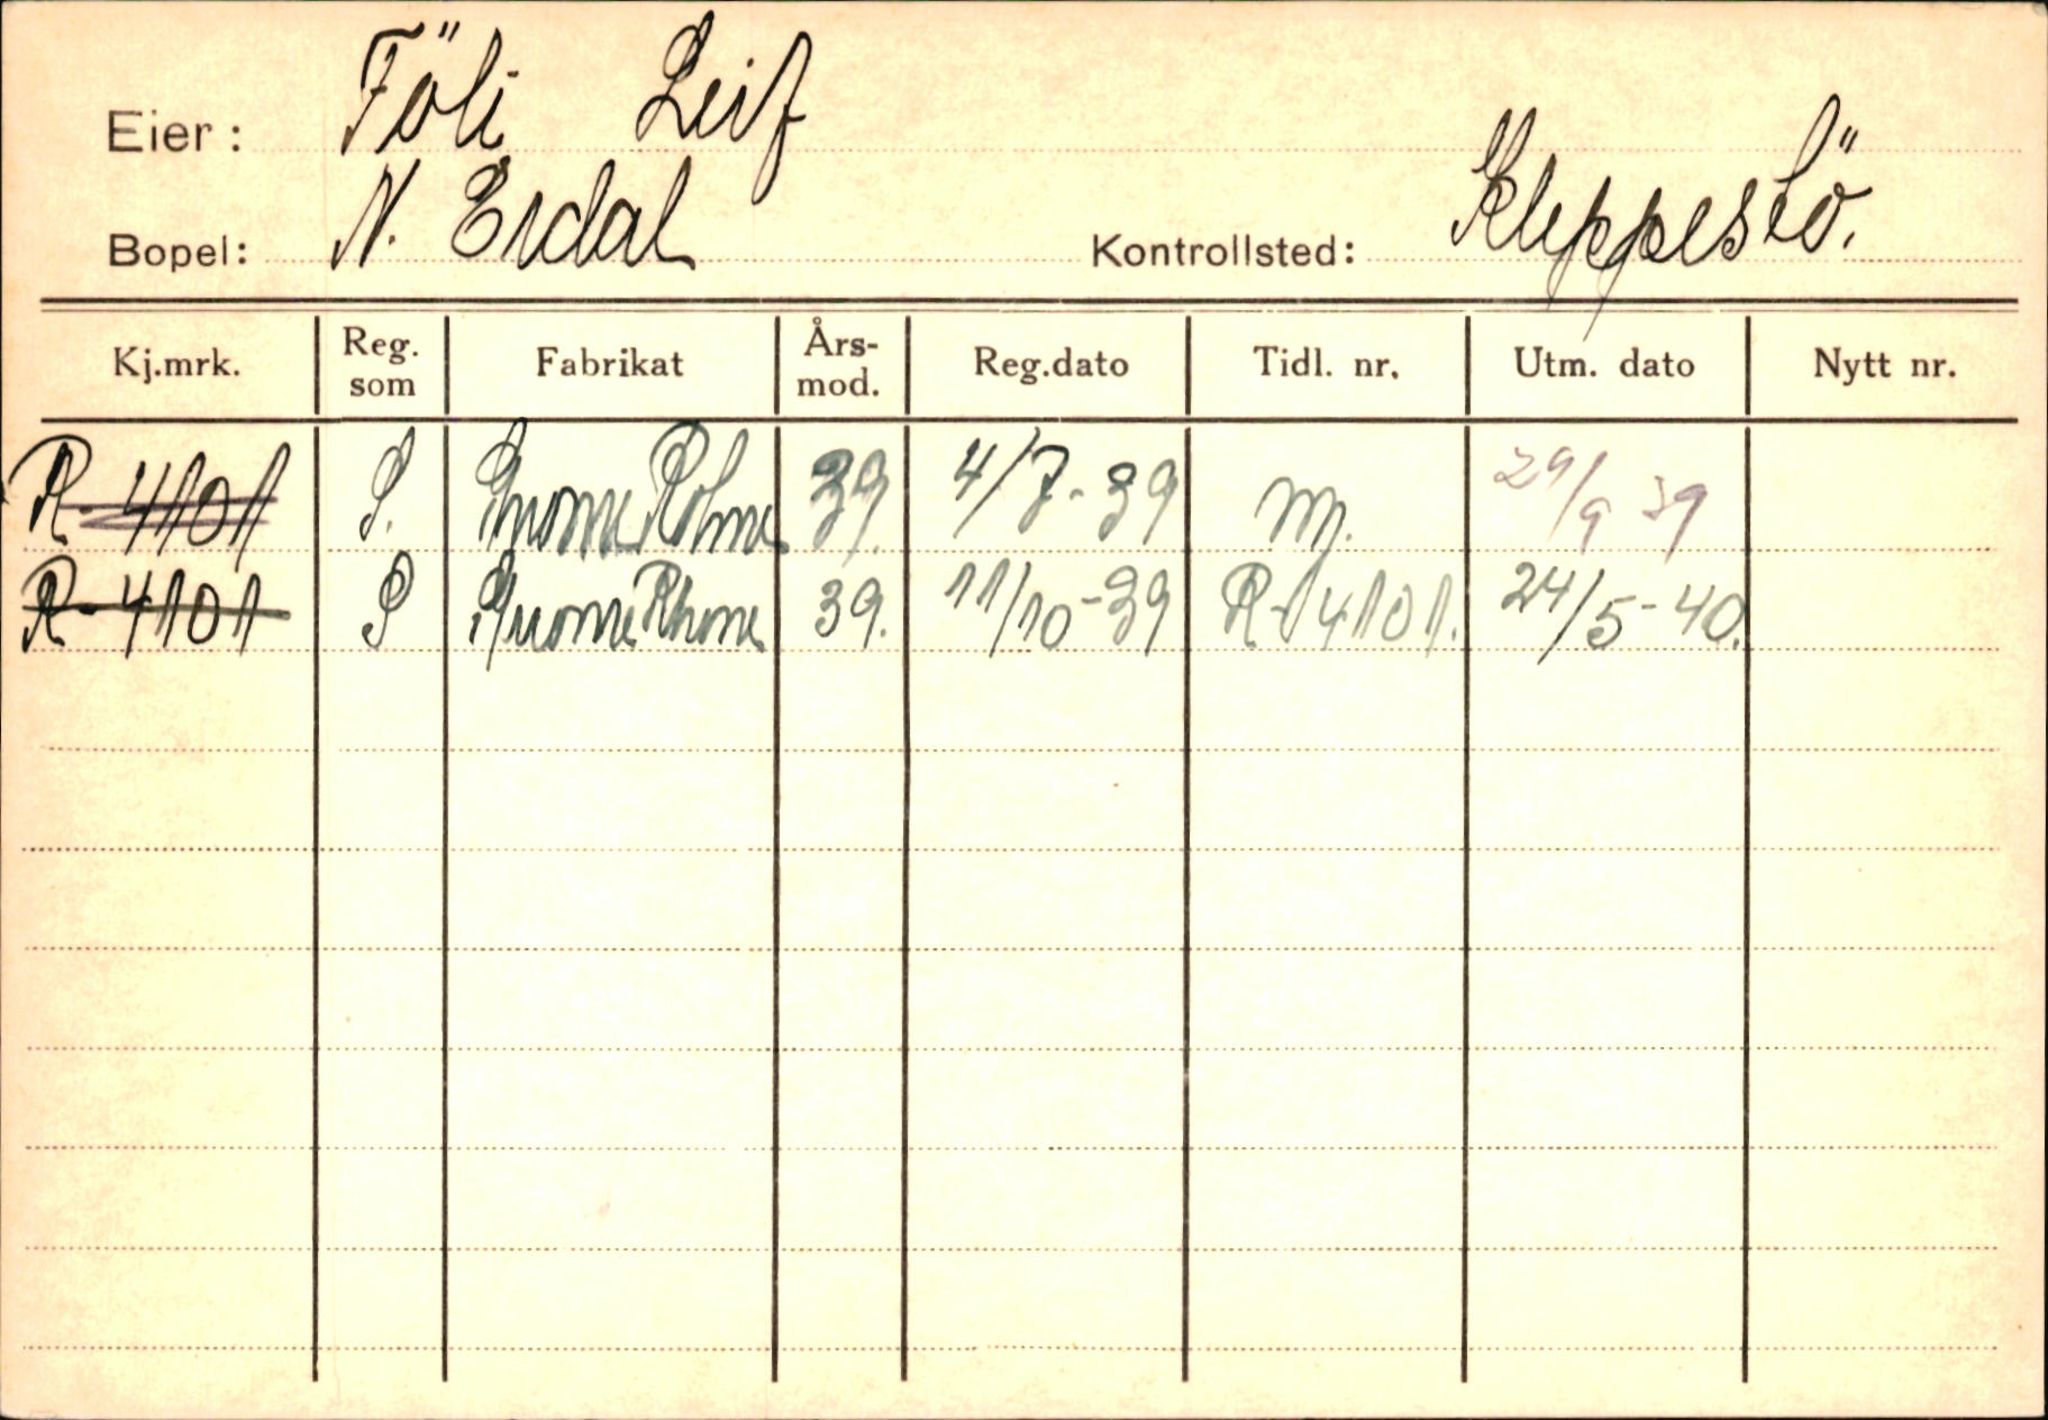 Eier: Föli Leif
Bopel: N. Erdal Kontrollsted: Kleppestö.
Kj.mrk. Reg. som Fabrikat Års-mod. Reg.dato Tidl. nr. Utm. dato Nytt nr.
R-4101 P. Gnome Rohne 39. 4/7-39 ny. 29/9 39
R-4101 P Gnome Rhone 39. 11/10-39 R-14101. 24/5-40.